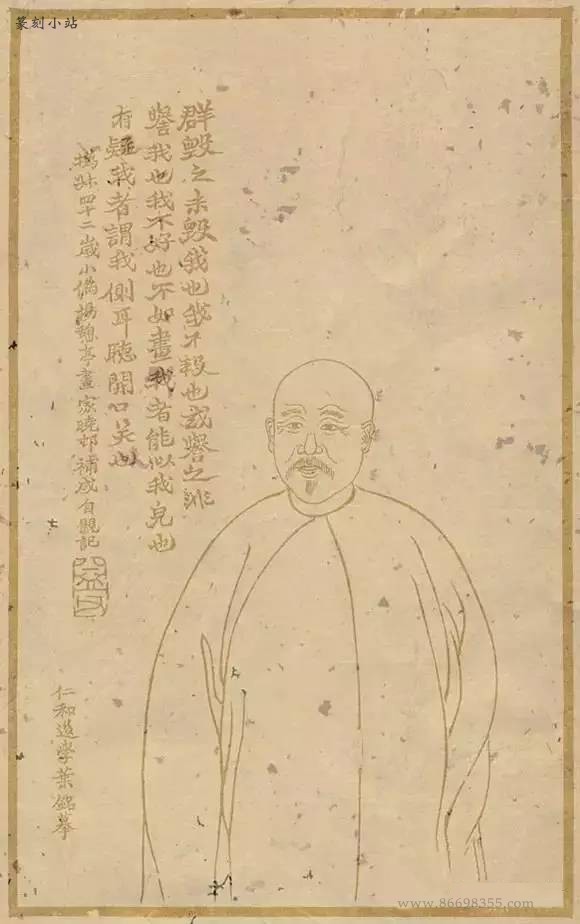 篆刻小站
群毀之未毀我也我不報也或譽之非
譽我也我不好也不如畫我者能似我皃也
有疑我者謂我側耳聽開口笑也
撝叔四十二歲小像楊憩亭畫家曉邨補成自題記
仁和後學葉銘摹
www.86698355.com